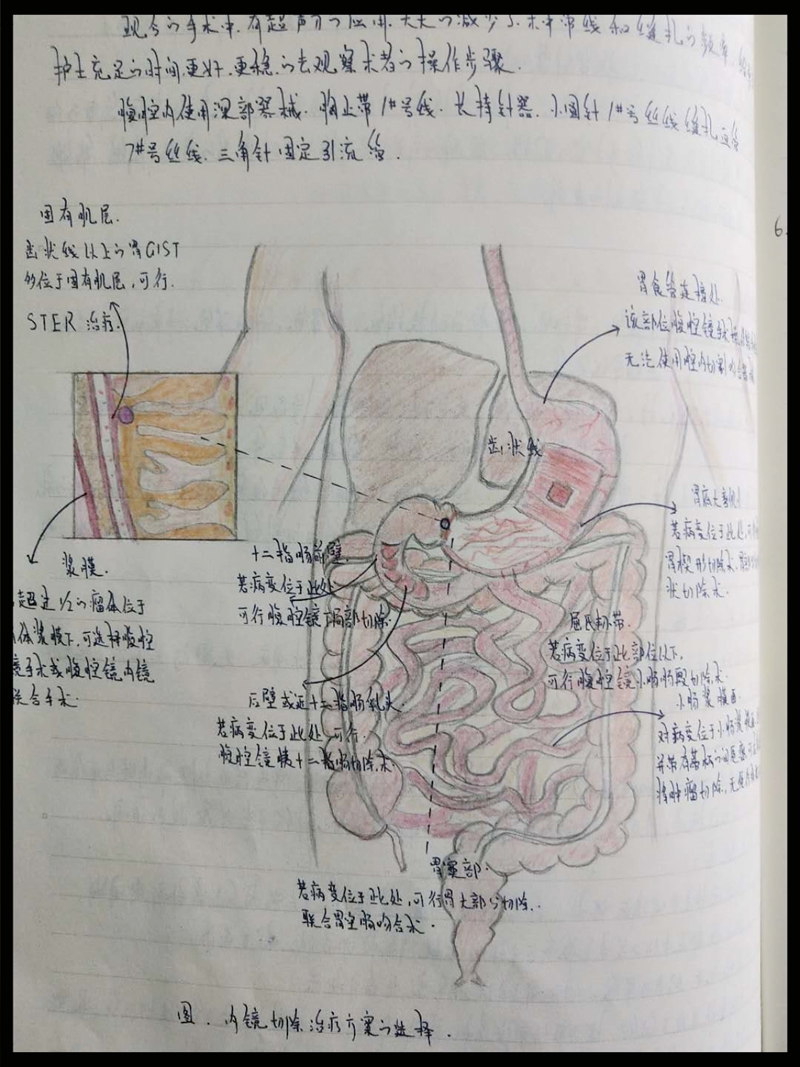 现今的手术中,有超声刀的应用,大大的减少了术中带线和缝扎的频率,
护士充足的时间更好、更稳的去观察术者的操作步骤.
腹腔内使用深部器械.胸止带1#号线.长持针器.小圆针1#号丝线缝扎血管
7#号丝线.三角针固定引流管.
固有肌层.
齿状线以上的胃GIST
位于固有肌层,可行.
STER 治疗.
胃食管连接处.
该部位腹腔镜手术
无法使用腔内切割
齿状线
胃底大弯
若病变位于此处,可
胃楔形切除术,
状切除术.
浆膜.
超过1/2的瘤体位于
浆膜下,可选择腹腔
镜手术或腹腔镜内镜
联合手术.
十二指肠前壁
若病变位于此处
可行腹腔镜下局部切除.
屈氏韧带.
若病变位于此部位以下,
可行腹腔镜小肠肠段切除术.
后壁或近十二指肠乳头.
若病变位于此处,可行.
腹腔镜胰十二指肠切除术.
小肠浆膜面.
对病变位于小肠浆膜
并带有
肿瘤切除,无
胃窦部.
若病变位于此处,可行胃大部分切除.
联合胃空肠吻合术.
图.内镜切除治疗方案的选择.
6.